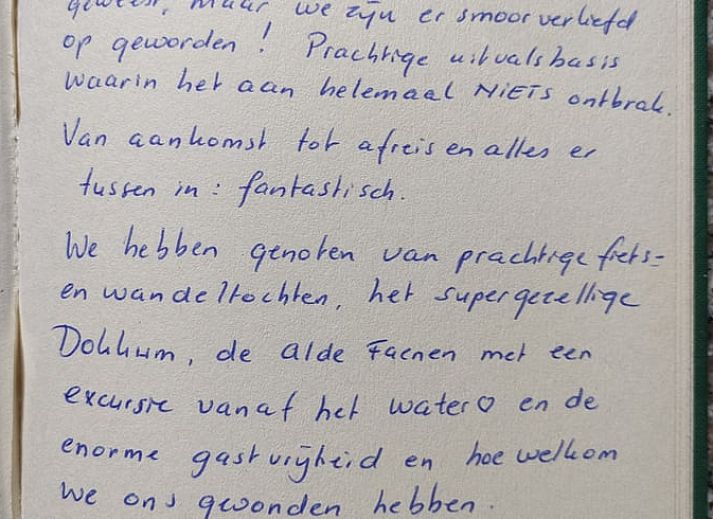 geweest, maar we zijn er smoorverliefd
op geworden! Prachtige uitvalsbasis
waarin het aan helemaal NIETS ontbrak.
Van aankomst tot afreis en alles er
tussen in: fantastisch.
We hebben genoten van prachtige fiets-
en wandeltochten, het supergezellige
Dokkum, de Alde Faenen met een
excursie vanaf het water♡ en de
enorme gastvrijheid en hoe welkom
we ons gevonden hebben.